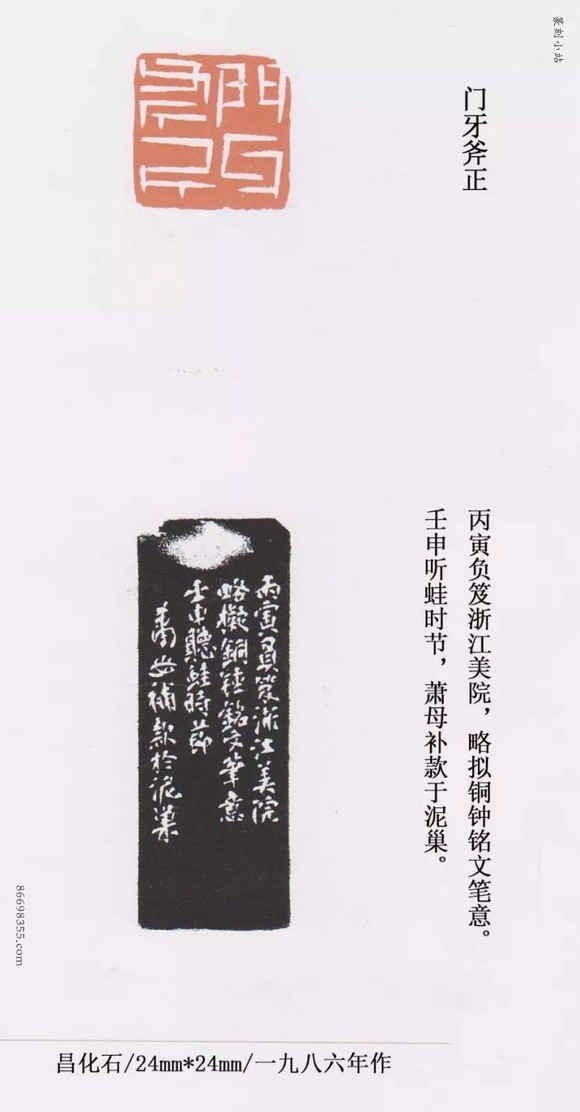 篆刻小站
门牙斧正
門牙斧正
丙寅负笈浙江美院，略拟铜钟铭文笔意。
壬申听蛙时节，萧母补款于泥巢。
丙寅負笈浙江美院
略擬銅鍾銘文筆意
壬申聽蛙時節
蕭母補款於泥巢
86698355.com
昌化石/24mm*24mm/一九八六年作